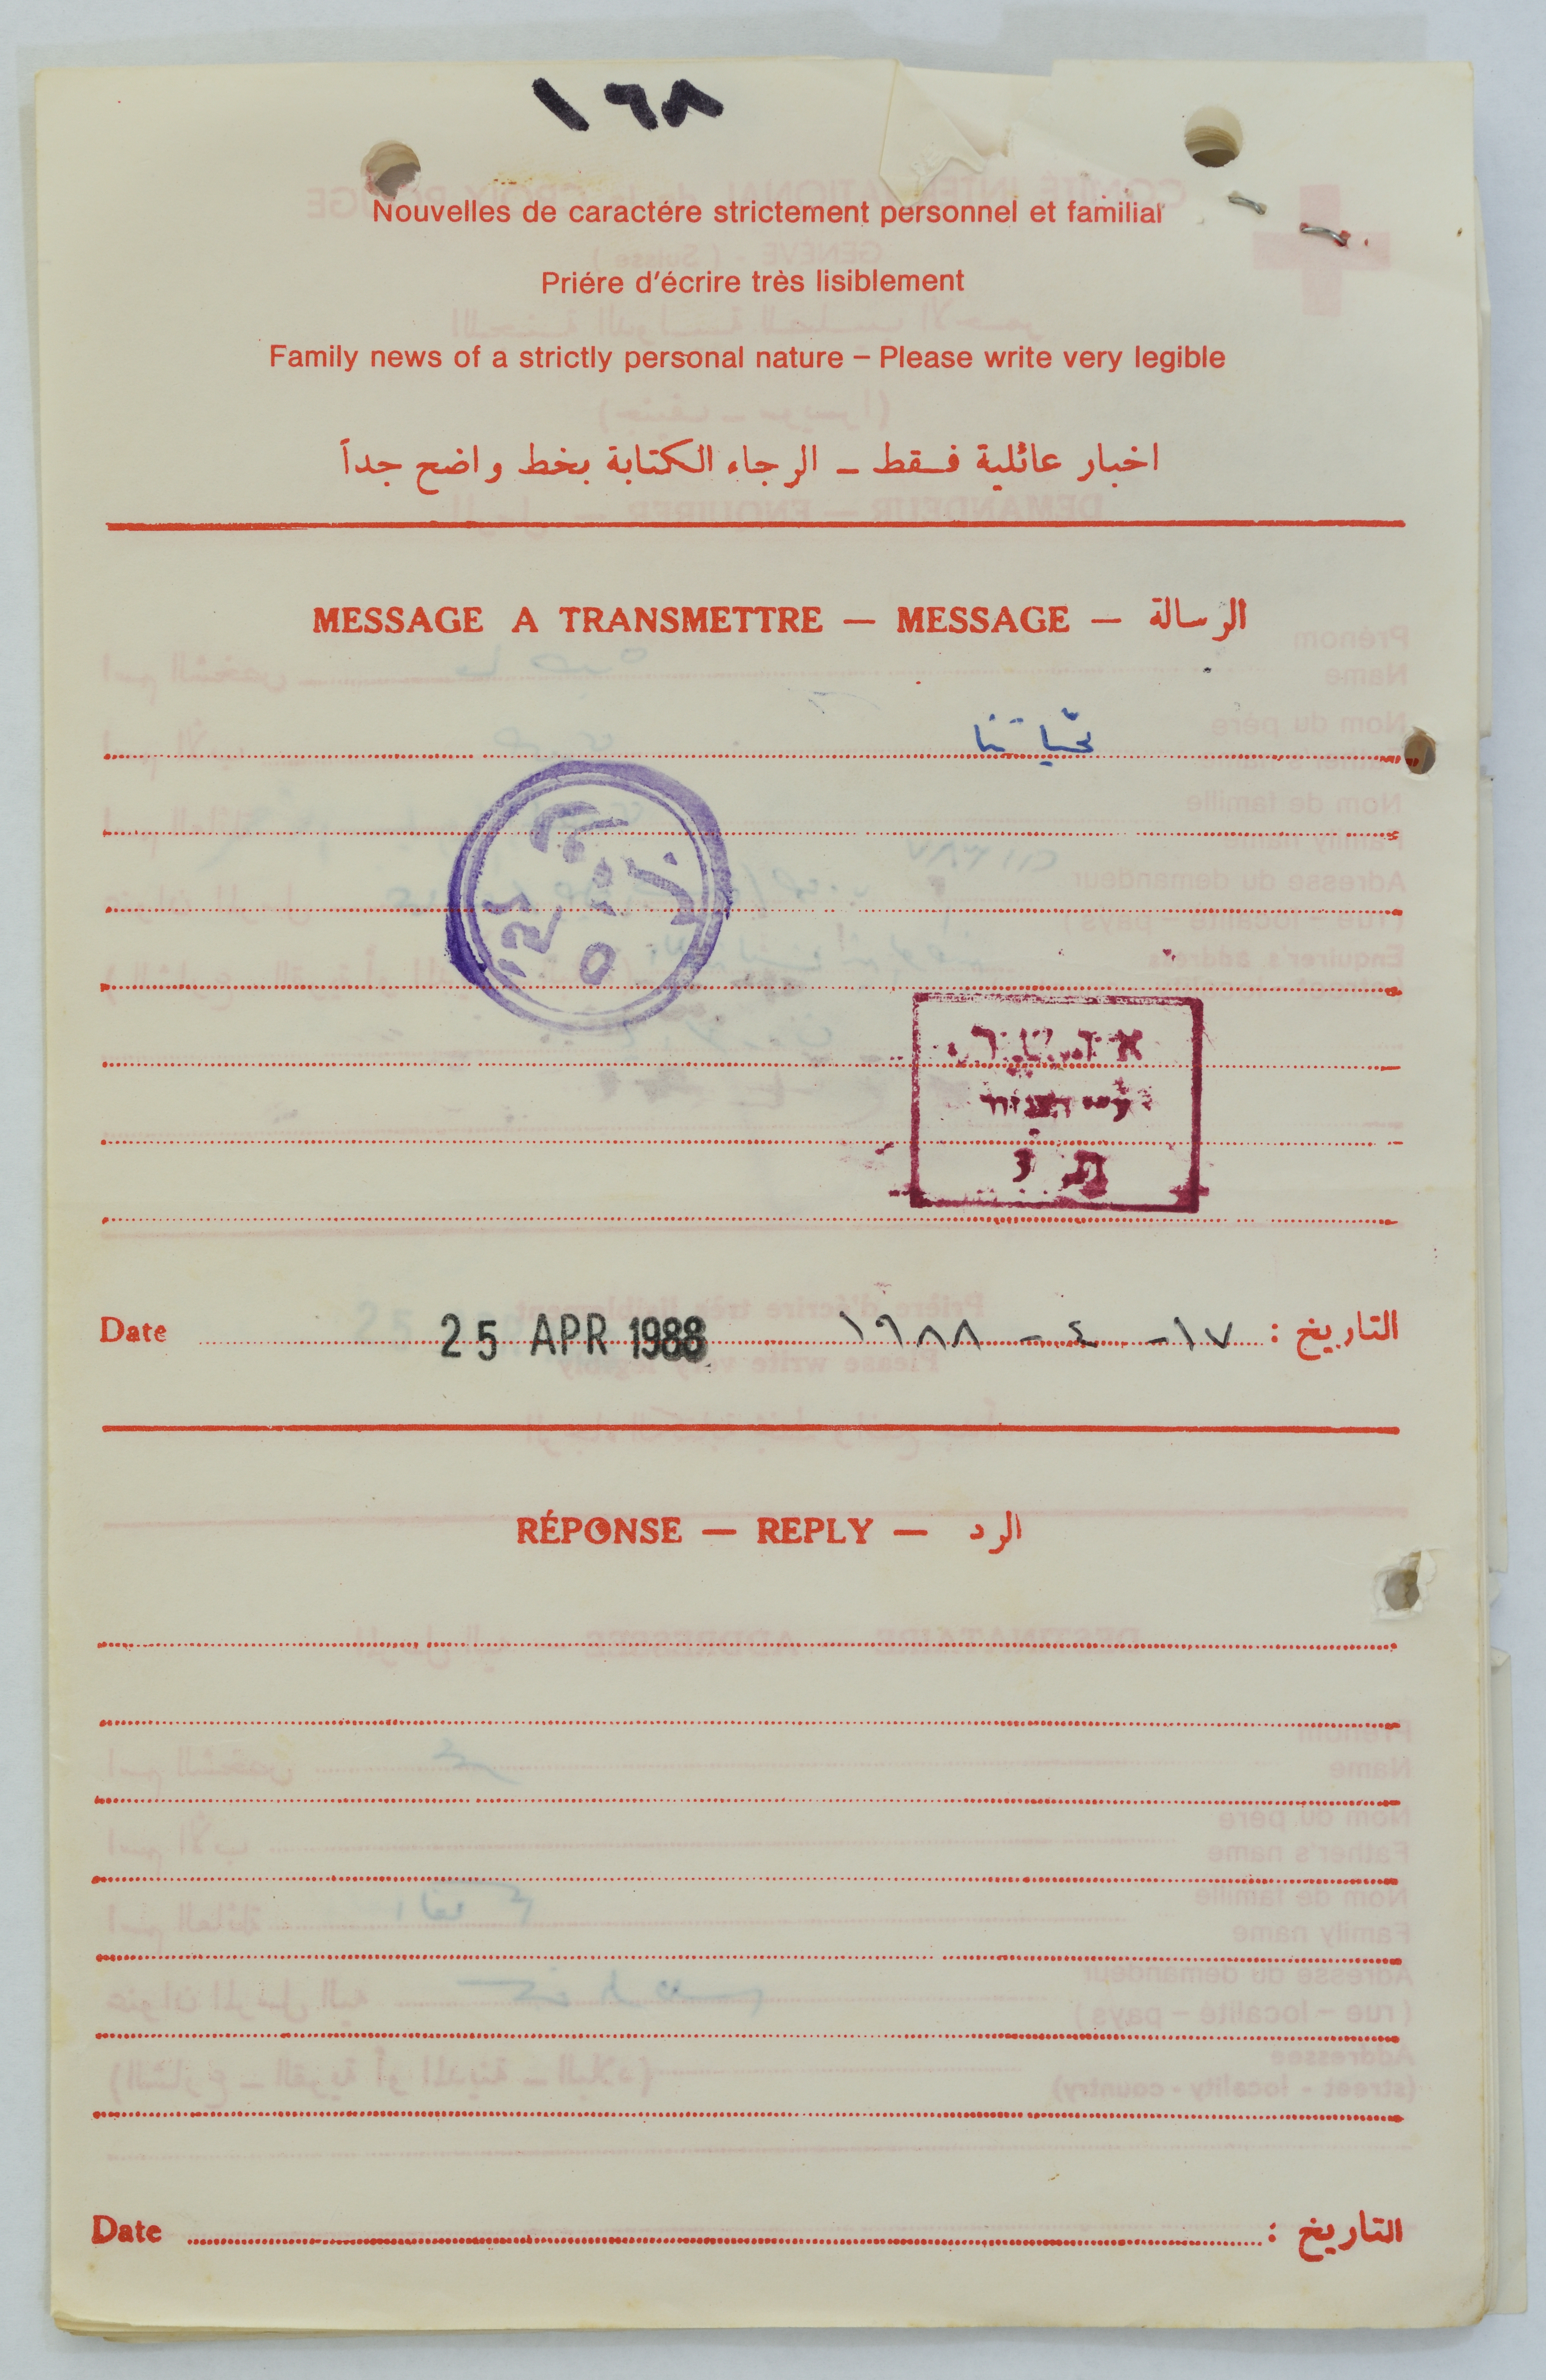 ١٦٨
Nouvelles de caractére strictement personnel et familial
Priére d'écrire très lisiblement
Family news of a strictly personal nature – Please write very legible
اخبار عائلية فقط ــ الرجاء الكتابة بخط واضح جداً
MESSAGE A TRANSMETTRE — MESSAGE — الرسالة
تحياتنا
Date 25 APR 1988 ١٧ - ٤ - ١٩٨٨ التاريخ :
RÉPONSE — REPLY — الرد
Date التاريخ :